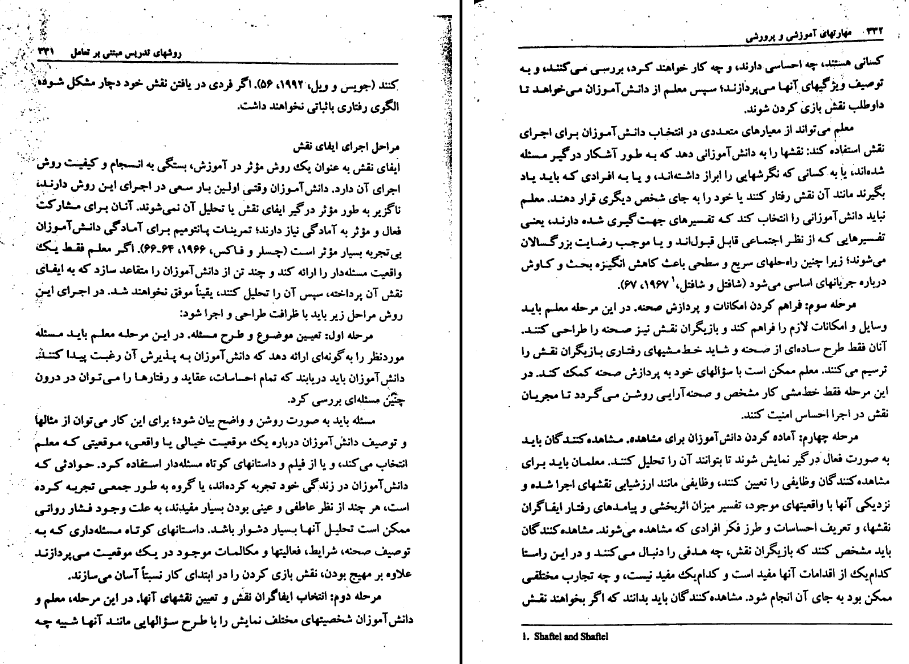 روشهای تدریس مبتنی بر تعامل ۳۳۱
کنند (جویس و ویل، ۱۹۹۲، ۵۶). اگر فردی در یافتن نقش خود دچار مشکل شود،
الگوی رفتاری باثباتی نخواهند داشت.
مراحل اجرای ایفای نقش
ایفای نقش به عنوان یک روش مؤثر در آموزش، بستگی به انسجام و کیفیت روش
اجرای آن دارد. دانش‌آموزان وقتی اولین بار سعی در اجرای این روش دارند،
ناگزیر به طور مؤثر درگیر ایفای نقش یا تحلیل آن نمی‌شوند. آنان برای مشارکت
فعال و مؤثر به آمادگی نیاز دارند؛ تمرینات پانتومیم برای آمادگی دانش‌آموزان
بی‌تجربه بسیار مؤثر است (چسلر و فاکس، ۱۹۶۶، ۶۴ـ۶۶). اگر معلم فقط یک
واقعیت مسئله‌دار را ارائه کند و چند تن از دانش‌آموزان را متقاعد سازد که به ایفای
نقش آن پرداخته، سپس آن را تحلیل کنند، یقیناً موفق نخواهند شد. در اجرای این
روش مراحل زیر باید با ظرافت طراحی و اجرا شود:
مرحله اول: تعیین موضوع و طرح مسئله. در این مرحله معلم باید مسئله
موردنظر را به‌گونه‌ای ارائه دهد که دانش‌آموزان به پذیرش آن رغبت پیدا کنند.
دانش‌آموزان باید دریابند که تمام احساسات، عقاید و رفتارها را می‌توان در درون
چنین مسئله‌ای بررسی کرد.
مسئله باید به صورت روشن و واضح بیان شود؛ برای این کار می‌توان از مثالها
و توصیف دانش‌آموزان درباره یک موقعیت خیالی یا واقعی، موقعیتی که معلم
انتخاب می‌کند، و یا از فیلم و داستانهای کوتاه مسئله‌دار استفاده کرد. حوادثی که
دانش‌آموزان در زندگی خود تجربه کرده‌اند، یا گروه به طور جمعی تجربه کرده
است، هر چند از نظر عاطفی و عینی بودن بسیار مفیدند، به علت وجود فشار روانی
ممکن است تحلیل آنها بسیار دشوار باشد. داستانهای کوتاه مسئله‌داری که به
توصیف صحنه، شرایط، فعالیتها و مکالمات موجود در یک موقعیت می‌پردازند
علاوه بر مهیج بودن، نقش بازی کردن را در ابتدای کار نسبتاً آسان می‌سازند.
مرحله دوم: انتخاب ایفاگران نقش و تعیین نقشهای آنها. در این مرحله، معلم و
دانش‌آموزان شخصیتهای مختلف نمایش را با طرح سؤالهایی مانند آنها شبیه چه
۳۳۲ مهارتهای آموزشی و پرورشی
کسانی هستند، چه احساسی دارند، و چه کار خواهند کرد، بررسی می‌کنند، و به
توصیف ویژگیهای آنها می‌پردازند؛ سپس معلم از دانش‌آموزان می‌خواهد تا
داوطلب نقش بازی کردن شوند.
معلم می‌تواند از معیارهای متعددی در انتخاب دانش‌آموزان برای اجرای
نقش استفاده کند: نقشها را به دانش‌آموزانی دهد که به طور آشکار درگیر مسئله
شده‌اند، یا به کسانی که نگرشهایی را ابراز داشته‌اند، و یا به افرادی که باید یاد
بگیرند مانند آن نقش رفتار کنند یا خود را به جای شخص دیگری قرار دهند. معلم
نباید دانش‌آموزانی را انتخاب کند که تفسیرهای جهت‌گیری شده دارند، یعنی
تفسیرهایی که از نظر اجتماعی قابل قبول‌اند و یا موجب رضایت بزرگسالان
می‌شوند؛ زیرا چنین راه‌حلهای سریع و سطحی باعث کاهش انگیزه بحث و کاوش
درباره جریانهای اساسی می‌شود (شافتل و شافتل،۱ ۱۹۶۷، ۶۷).
مرحله سوم: فراهم کردن امکانات و پردازش صحنه. در این مرحله معلم باید
وسایل و امکانات لازم را فراهم کند و بازیگران نقش نیز صحنه را طراحی کنند.
آنان فقط طرح ساده‌ای از صحنه و شاید خط‌مشیهای رفتاری بازیگران نقش را
ترسیم می‌کنند. معلم ممکن است با سؤالهای خود به پردازش صحنه کمک کند. در
این مرحله فقط خط‌مشی کار مشخص و صحنه‌آرایی روشن می‌گردد تا مجریان
نقش در اجرا احساس امنیت کنند.
مرحله چهارم: آماده کردن دانش‌آموزان برای مشاهده. مشاهده‌کنندگان باید
به صورت فعال درگیر نمایش شوند تا بتوانند آن را تحلیل کنند. معلمان باید برای
مشاهده‌کنندگان وظایفی را تعیین کنند، وظایفی مانند ارزشیابی نقشهای اجرا شده و
نزدیکی آنها با واقعیتهای موجود، تفسیر میزان اثربخشی و پیامدهای رفتار ایفاگران
نقشها، و تعریف احساسات و طرز فکر افرادی که مشاهده می‌شوند. مشاهده‌کنندگان
باید مشخص کنند که بازیگران نقش، چه هدفی را دنبال می‌کنند و در این راستا
کدام‌یک از اقدامات آنها مفید است و کدام‌یک مفید نیست، و چه تجارب مختلفی
ممکن بود به جای آن انجام شود. مشاهده‌کنندگان باید بدانند که اگر بخواهند نقش
1. Shaftel and Shaftel